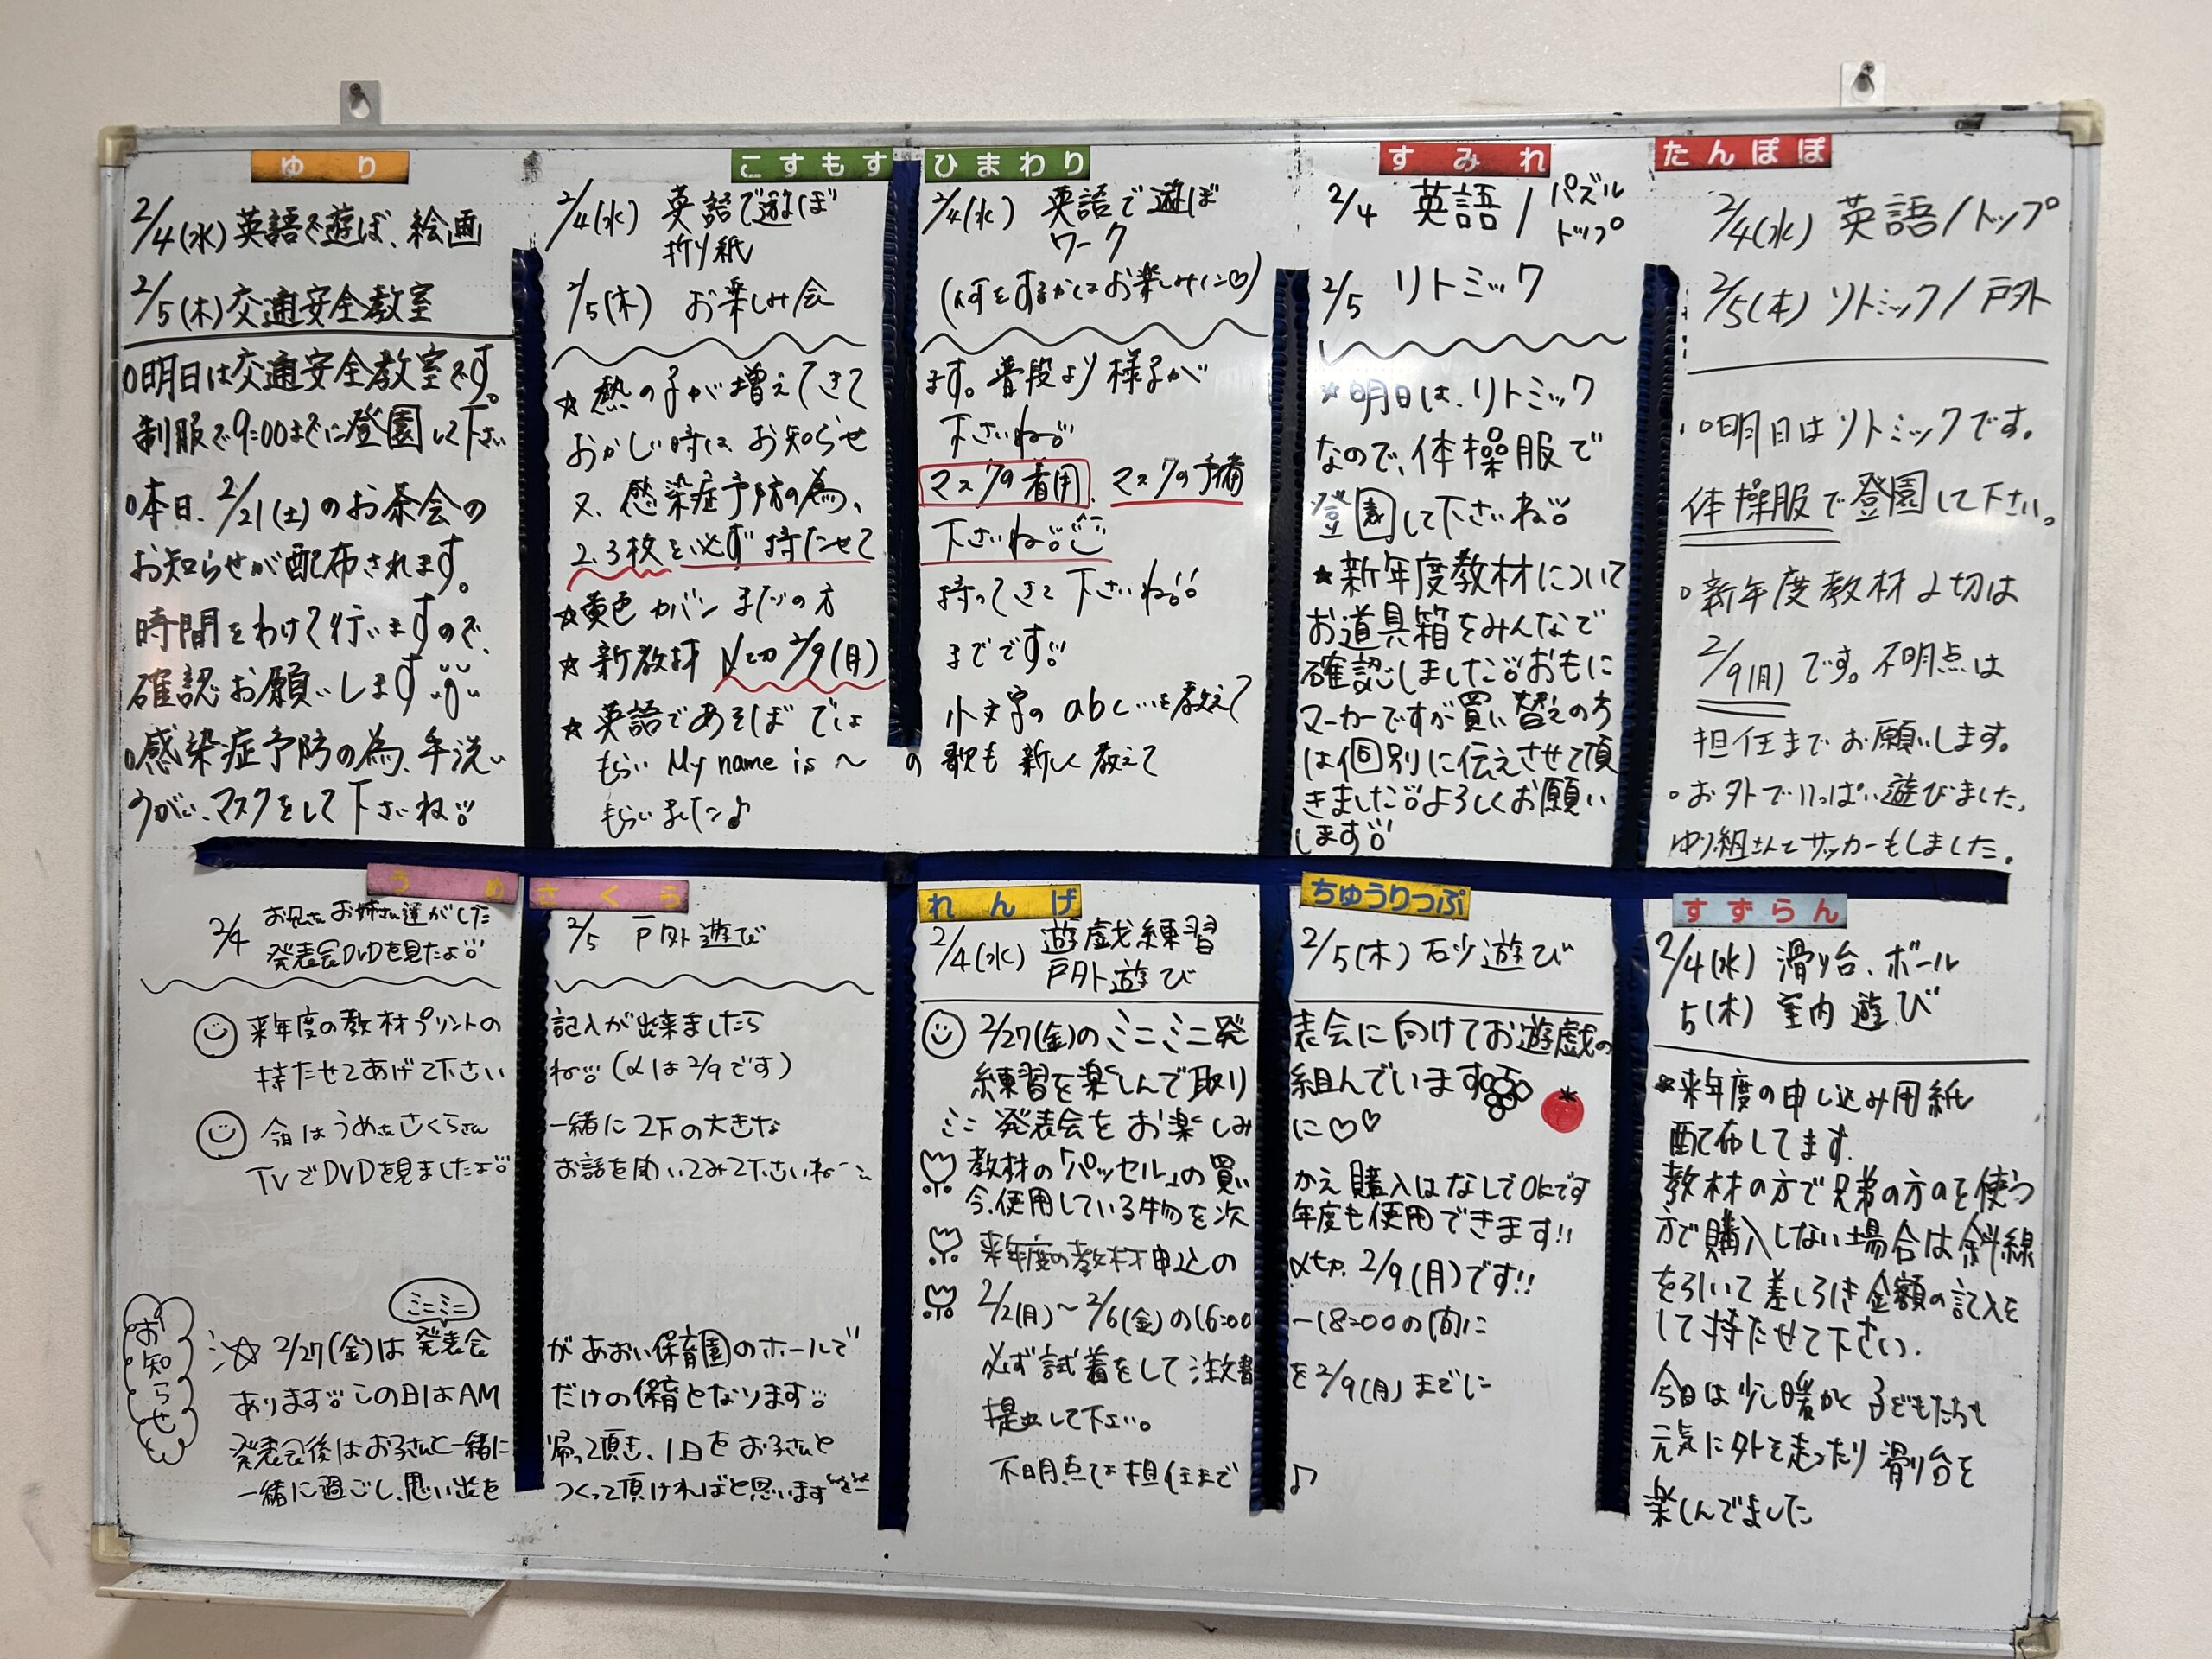 ゆり
2/4(水)英語で遊ぼ、絵画
2/5(木)交通安全教室
○明日は交通安全教室です。
制服で9:00までに登園して下さい
○本日、2/21(土)のお茶会の
お知らせが配布されます。
時間をわけて行いますので、
確認お願いします
○感染症予防の為、手洗い
うがい、マスクをして下さいね
こすもす ひまわり
2/4(水) 英語で遊ぼ
折り紙
2/5(木) お楽しみ会
2/4(水) 英語で遊ぼ
ワーク
(何をするかはお楽しみに♡)
☆熱の子が増えてきて ます。普段より様子が
おかしい時は、お知らせ 下さいね
又、感染症予防の為、 マスクの着用、マスクの予備
2.3枚を必ず持たせて 下さいね
☆黄色カバンまだの方 持ってきて下さいね
☆新教材〆切2/9(月) までです
☆英語であそぼでは 小文字のabc…を教えて
もらい My name is ～ の 歌も新しく教えて
もらいました♪
すみれ
2/4 英語/パズル
トップ
2/5 リトミック
☆明日は、リトミック
なので、体操服で
登園して下さいね
★新年度教材について
お道具箱をみんなで
確認しました おもに
マーカーですが買い替えの方
は個別に伝えさせて頂
きました よろしくお願い
します
たんぽぽ
2/4(水) 英語/トップ
2/5(木) リトミック/戸外
○明日はリトミックです。
体操服で登園して下さい。
○新年度教材〆切は
2/9(月)です。不明点は
担任までお願いします。
○お外でいっぱい遊びました。
ゆり組さんとサッカーもしました。
うめ さくら
2/4 お兄さんお姉さん達がした
発表会DVDを見たよ
2/5 戸外遊び
来年度の教材プリントの 記入が出来ましたら
持たせてあげて下さい ね (〆は2/9です)
今日はうめさんさくらさん 一緒に2Fの大きな
TVでDVDを見ましたよ お話を聞いてみて下さいね
お知らせ
☆2/27(金)はミニミニ発表会 があおい保育園のホールで
あります この日はAM だけの保育となります
発表会後はお子さんと一緒に 帰って頂き、1日をお子さんと
一緒に過ごし、思い出を つくって頂ければと思います
れんげ ちゅうりっぷ
2/4(水) 遊戯練習
戸外遊び
2/5(木) 石少遊び
2/27(金)のミニミニ発 表会に向けてお遊戯の
練習を楽しんで取り 組んでいます
ミニ発表会をお楽しみ に♡♡
教材の「パッセル」の買い かえ購入はなしでOKです
今、使用している物を次 年度も使用できます!!
来年度の教材申込の 〆切、2/9(月)です!!
2/2(月)～2/6(金)の16:00 ー18:00の間に
必ず試着をして注文書 を2/9(月)までに
提出して下さい。
不明点は担任まで♪
すずらん
2/4(水) 滑り台、ボール
5(木) 室内遊び
*来年度の申し込み用紙
配布してます.
教材の方で兄弟の方のを使う
方で購入しない場合は斜線
を引いて差し引き金額の記入を
して持たせて下さい.
今日は少し暖かく子どもたちも
元気に外を走ったり滑り台を
楽しんでました